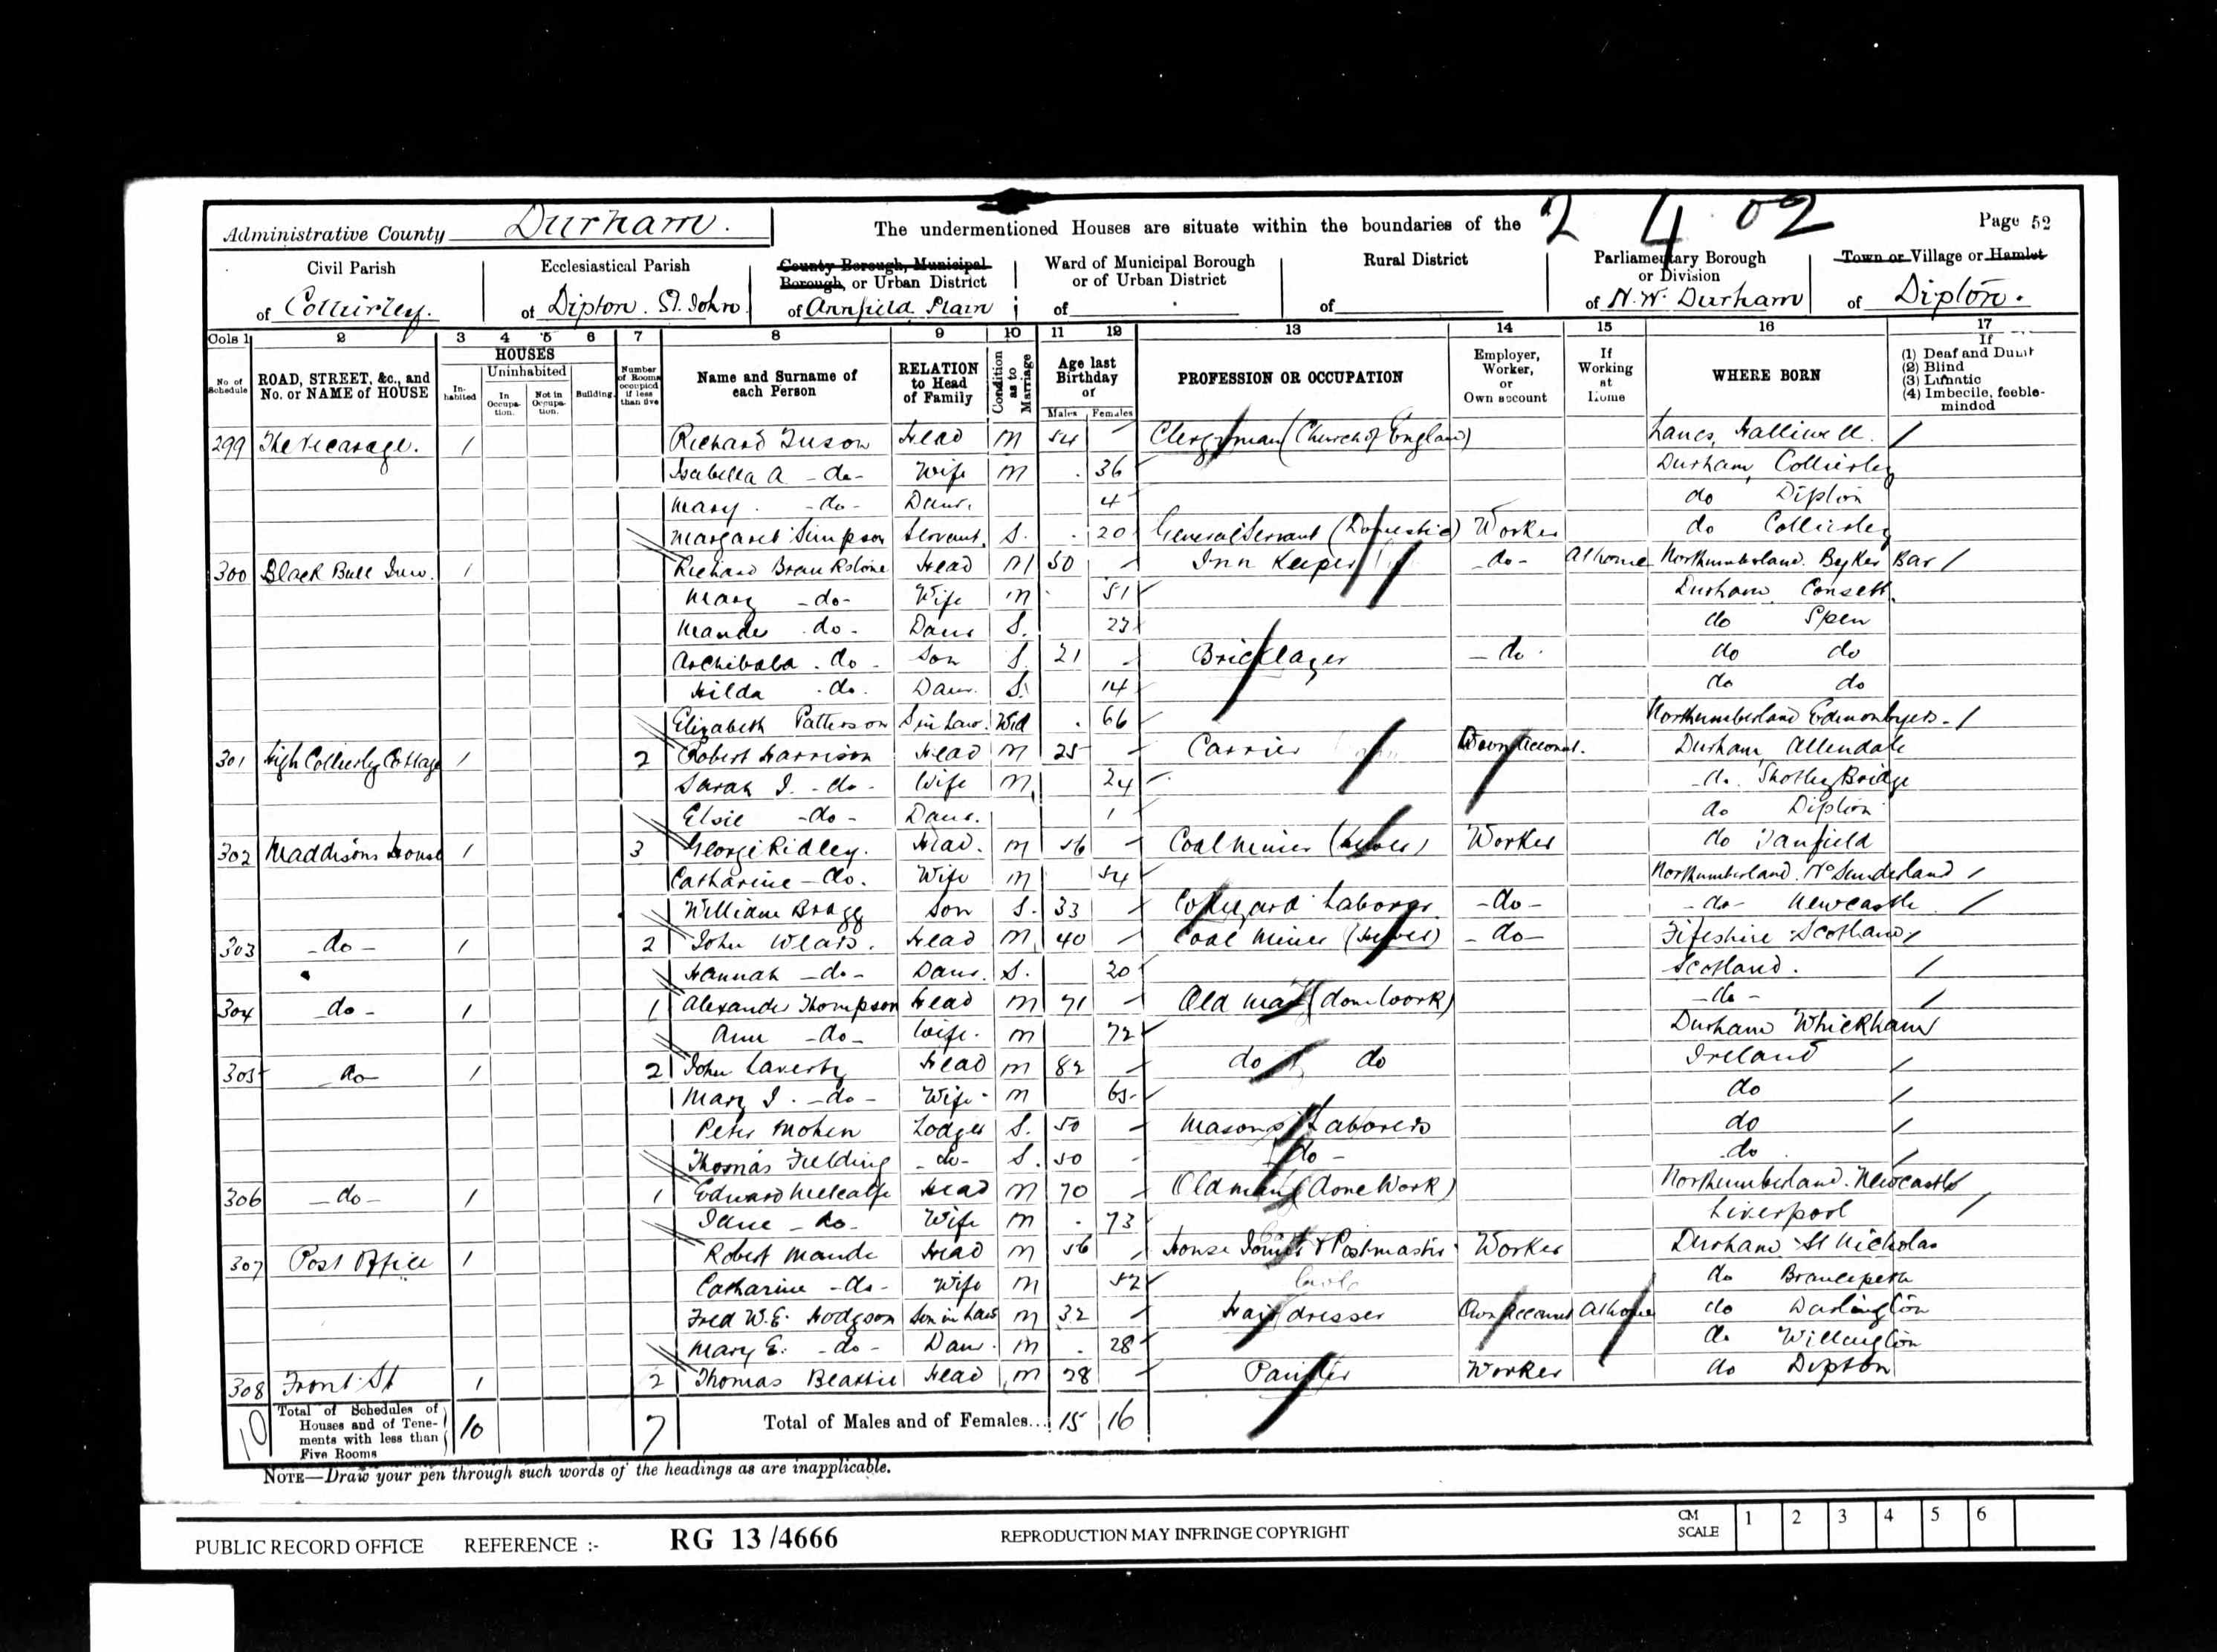 Administrative County Durham. The undermentioned Houses are situate within the boundaries of the 2 4 02 Page 52
Civil Parish Ecclesiastical Parish County Borough, Municipal Borough, or Urban District Ward of Municipal Borough or of Urban District Rural District Parliamentary Borough or Division Town or Village or Hamlet
of Collierley. of Dipton. St. John of Annfield Plain of of of N.W. Durham of Dipton.
Cols 1 2 3 4 5 6 7 8 9 10 11 12 13 14 15 16 17
No of Schedule ROAD, STREET, &c., and No. or NAME of HOUSE HOUSES Inhabited Uninhabited In Occupation. Not in Occupation. Building. Number of Rooms occupied if less than five Name and Surname of each Person RELATION to Head of Family Condition as to Marriage Age last Birthday of Males Females PROFESSION OR OCCUPATION Employer, Worker, or Own account If Working at Home WHERE BORN If (1) Deaf and Dumb (2) Blind (3) Lunatic (4) Imbecile, feeble-minded
299 The Vicarage. 1 Richard Tuson Head M 54 Clergyman (Church of England) Lancs, Halliwell
Isabella A -do- Wife M 36 Durham Collierley
Mary. -do- Daur. 4 do Dipton
Margaret Simpson Servant. S. 20 General Servant (Domestic) Worker do Collierley
300 Black Bull Inn. 1 Richard Brankstone Head M 50 Inn Keeper -do- At home Northumberland. Byker Bar
Mary -do- Wife M 51 Durham. Consett.
Maude do- Daur S. 23 do Spen
Archibald. do- Son S 21 Bricklayer -do- do do
Hilda do. Daur. S. 14 do do
Elizabeth Patterson Wid 66 Northumberland Edmondbyers
301 High Collierley Cottage 1 2 Robert Harrison Head M 25 Carrier Own Account. Durham Allendale
Sarah J. -do- Wife M 24 do. Shotley Bridge
Elsie -do- Daur. 1 do Dipton
302 Maddisons House 1 3 George Ridley. Head. M 56 Coal Miner (hewer) Worker do Tanfield
Catharine -do. Wife M 54 Northumberland. No Sunderland
William Bragg Son S. 33 Laborer -do- -do- Newcastle
303 -do- 1 2 John Wears. Head M 40 Coal Miner (hewer) -do- Fifeshire Scotland
Hannah -do- Daur. S. 20 Scotland.
304 -do- 1 1 Alexander Thompson Head M 71 Old Man (done Work) -do-
Ann -do- Wife. M 72 Durham Whickham
305 -do- 1 2 John Laverty Head M 82 do do Ireland
Mary J. -do- Wife. M 65 do
Peter Mohen Lodger S. 50 Masons Laborers do
Thomas Fielding -do- S. 50 do- do
306 -do- 1 1 Edward Metcalfe Head M 70 Old man (done Work) Northumberland. Newcastle
Jane -do- Wife M 73 Liverpool
307 Post Office 1 Robert Maude Head M 56 House Joiner & Postmaster Worker Durham St Nicholas
Catharine -do- Wife M 52 do Brancepeth
Fred W.E. Hodgson Son in Law M 32 Hair dresser Own Account At home do Darlington
Mary E. -do- Daur. M 28 do Willington
308 Front St 1 2 Thomas Beattie Head M 28 Painter Worker do Dipton
10 Total of Schedules of Houses and of Tenements with less than Five Rooms 10 7 Total of Males and of Females... 15 16
NOTE—Draw your pen through such words of the headings as are inapplicable.
PUBLIC RECORD OFFICE REFERENCE :- RG 13/4666 REPRODUCTION MAY INFRINGE COPYRIGHT CM SCALE 1 2 3 4 5 6